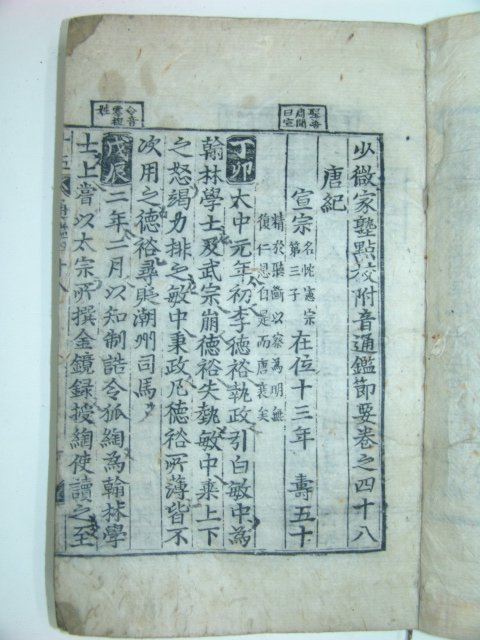 少微家塾點校附音通鑑節要卷之四十八
唐紀
宣宗 名忱憲宗第三子 在位十三年 壽五十
精於聽斷以察爲明無復仁恩自是而唐衰矣
丁卯 大中元年初李德裕執政引白敏中爲
翰林學士及武宗崩德裕失執敏中乘上下
之怒竭力排之敏中秉政凡德裕所薄皆不
次用之德裕尋貶潮州司馬
戊辰 二年二月以知制誥令狐綯爲翰林學
士上嘗以太宗所撰金鏡錄授綯使讀之至